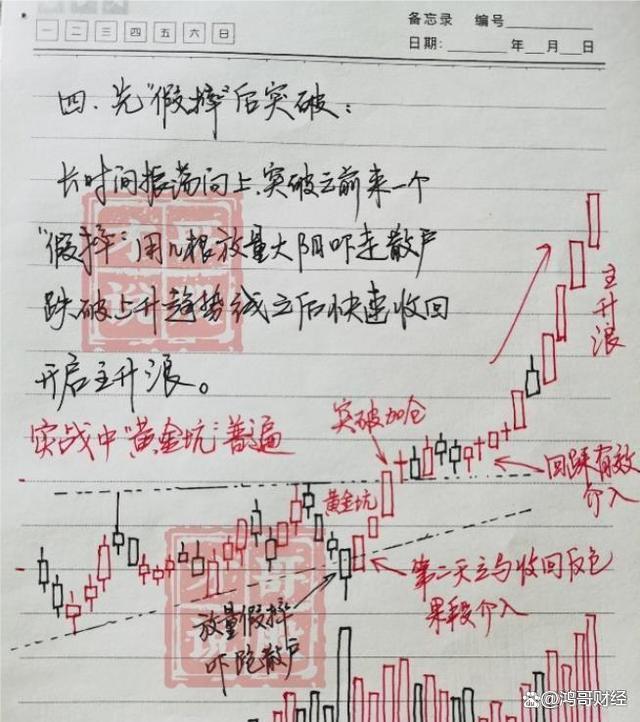 备忘录 编号
一 二 三 四 五 六 日
日期: 年 月 日
四.先"假摔"后突破:
长时间振荡向上.突破之前来一个
"假摔"用几根放量大阴吓走散户
跌破上升趋势线之后快速收回
开启主升浪。
主升浪
突破加仓
实战中"黄金坑"普遍
回踩有效
介入
黄金坑
第二天立马收回反包
果段介入
放量假摔
吓跑散户
鸿哥财经